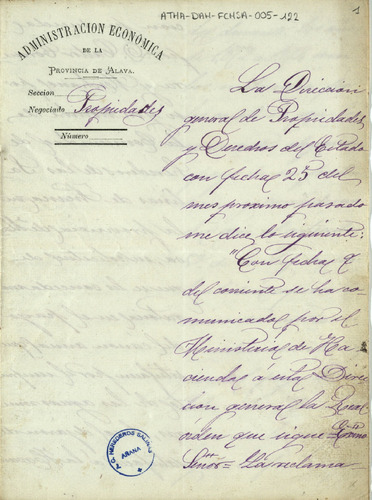 ATHA-DAH-FCHSA-005-122
1
ADMINISTRACION ECONOMICA
DE LA
PROVINCIA DE ALAVA.
Seccion
Negociado Propiedades
Número
La Direccion
general de Propiedades
y Derechos del Estado
con fecha 25 del
mes proximo pasado
me dice lo siguiente:
"Con fecha 7
del corriente se ha co-
municado por el
Ministerio de Ha-
cienda á esta Direc-
cion general la Real
orden que sigue = Excmo
Señor = La reclama-
HEREDEROS SALINAS
ARANA